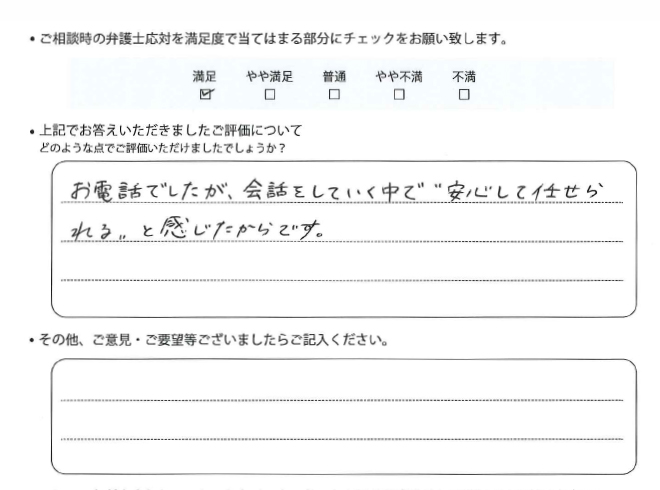 • ご相談時の弁護士応対を満足度で当てはまる部分にチェックをお願い致します。
満足 やや満足 普通 やや不満 不満
☑ □ □ □ □
• 上記でお答えいただきましたご評価について
どのような点でご評価いただけましたでしょうか？
お電話でしたが、会話をしていく中で〝安心して任せら
れる〟と感じたからです。
• その他、ご意見・ご要望等ございましたらご記入ください。